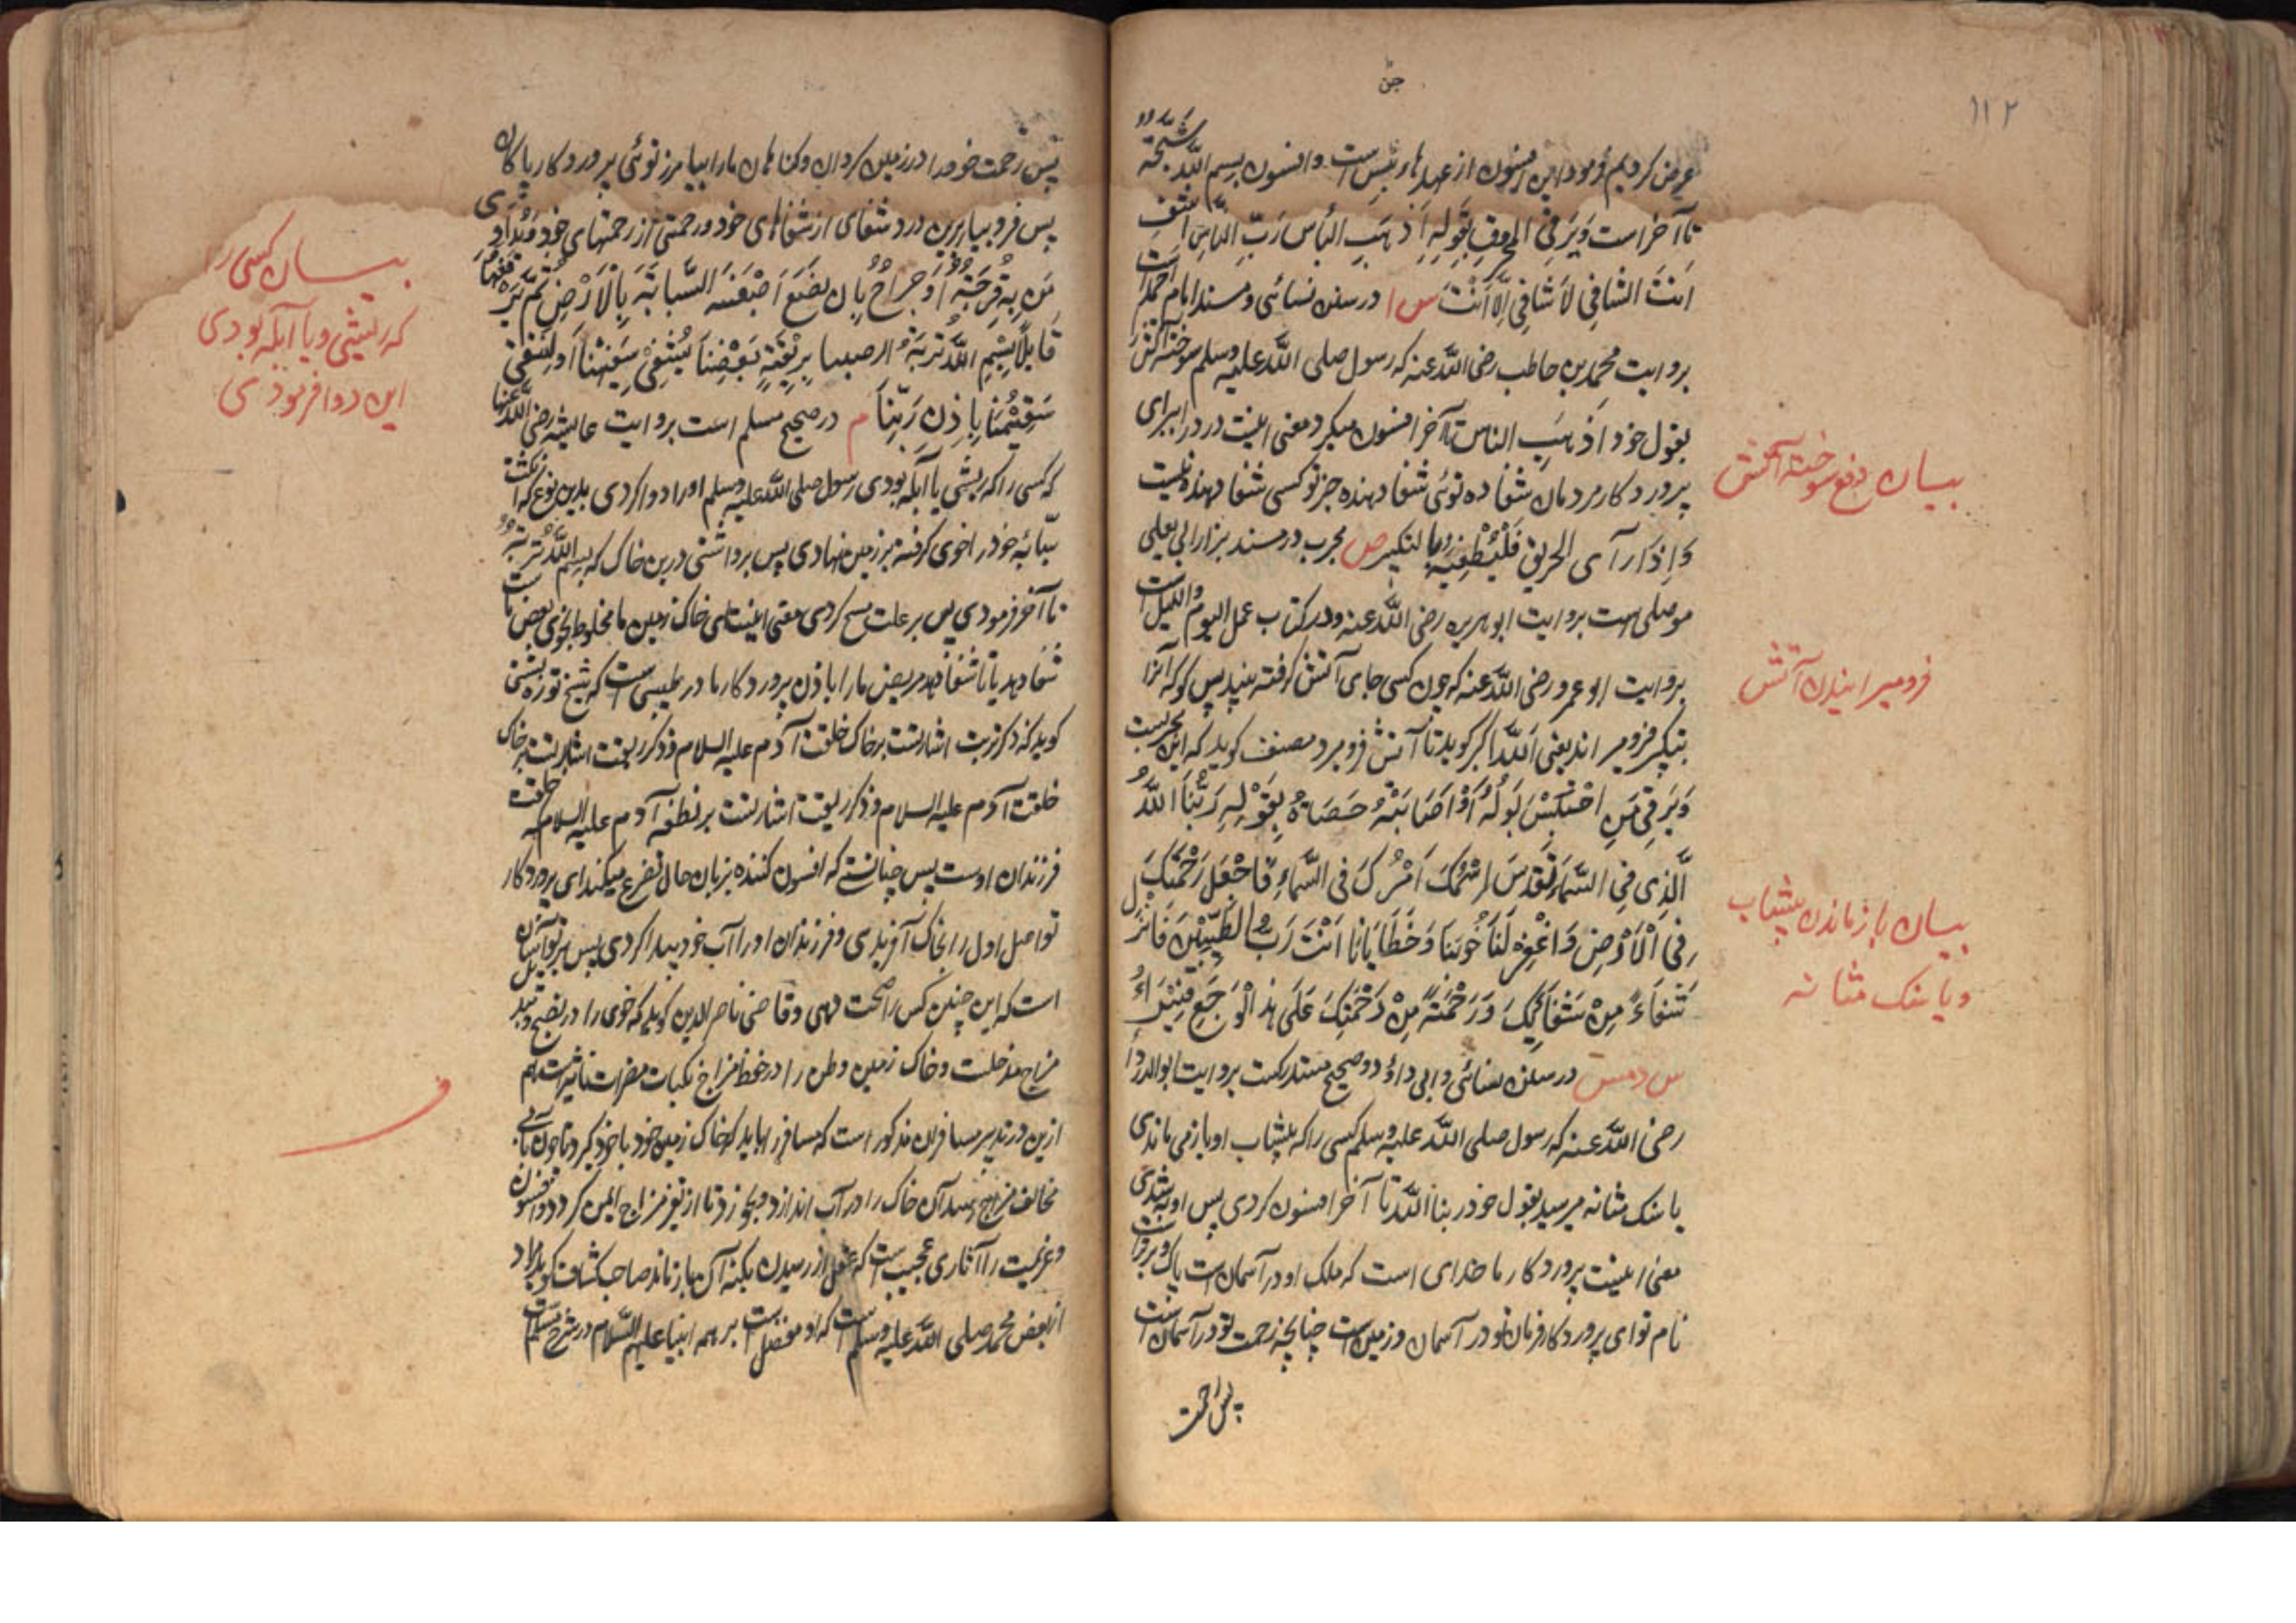 ۱۱۲
جن
عرض کردیم فرمود این افسون از عهدهاء جن است و افسون بسم الله شجّة
تا آخر است وَیَرقِی المحروقَ بِقَولِهِ اَذهَبِ البَأسَ رَبَّ النَّاسِ اشفِ
اَنتَ الشافِی لَا شَافِی اِلَّا اَنتَ س ا در سنن نسائی و مسند امام احمد است
بروایت محمد بن حاطب رضی الله عنه که رسول صلی الله علیه وسلم سوخته آتش را
بقول خود اَذهَبِ الباس تا آخر افسون میکرد معنی اینست دردرا ببرای
پروردکار مردمان شفا ده توئی شفا دهنده جز تو کسی شفا دهنده نیست
وَاِذَا رَآی الحریق فَلیُطفِئهُ بالتکبیر ص مجرب در مسند بزار ابی یعلی
موصلی است بروایت ابو هریره رضی الله عنه و در کتاب عمل الیوم واللیل است
بروایت ابو عمرو رضی الله عنه که چون کسی جای آتش کرفته بیند پس کو که آنرا
بتکبیر فرومیراند یعنی الله اکبر کوید تا آتش فرومیرد مصنف کوید که این مجربست
وَیَرقِی مَنِ احتَبَسَ بَولُهُ اَو اَصَابَتهُ حَصَاةٌ بِقَولِهِ رَبُّنَا اللهُ
الَّذِی فِی السَّمَاءِ تَقَدَّسَ اسمُکَ اَمرُکَ فی السَّمَاءِ فَاجعَل رَحمَتَکَ
فِی الاَرضِ وَاغفِر لَنَا حُوبَنَا وَخَطَایَانَا اَنتَ رَبُّ الطَّیِّبِینَ فَاَنزِل
شِفَاءً مِن شِفَائِکَ وَرَحمَةً مِن رَحمَتِکَ عَلَی هذَا الوَجَعِ فَیَبرَأُ
س د مس در سنن نسائی و ابی داؤد و صحیح مستدرکست بروایت ابو الدرداء
رضی الله عنه که رسول صلی الله علیه وسلم کسی را که پیشاب او باز می ماندی
یا سنک مثانه میرسید بقول خود ربنا الله تا آخر افسون کردی پس او به شدی
معنی اینست پروردکار ما خدای است که ملک او در آسمان است پاک و برتر است
نام تو ای پروردکار فرمان تو در آسمان و زمین است چنانچه رحمت تو در آسمان است
پس رحمت
بیان دفع سوخته آتش
فرومیرانیدن آتش
بیان باز ماندن پیشاب
ویا سنک مثانه
پس رحمت خود را در زمین کردان و کناهان ما را بیامرز توئی پروردکار پاکان
پس فرو بیار برین درد شفای از شفاهای خود و رحمتی از رحمتهای خود وَیُدَاوِی
مَن بِهِ قُرحَةٌ اَو جِرَاحٌ بِاَن یَضَعَ اِصبَعَهُ السَّبَابَةَ بِالاَرضِ ثُمَّ یَرفَعُهَا
قَایِلًا بِسمِ اللهِ تُربَةُ ارضِنا بِرِیقَةِ بَعضِنَا یُشفَی سَقِیمُنَا اَو لِیُشفَی
سَقِیمُنَا بِاِذنِ رَبِّنَا م در صحیح مسلم است بروایت عایشه رضی الله عنها
که کسی را که ریشی یا آبله بودی رسول صلی الله علیه وسلم اورا دوا کردی بدین نوع که انکشت
سبّابه خود را خوی کرفته بر زمین نهادی پس برداشتی درین خاک که بسم الله تربة
تا آخر فرمودی پس بر علت مسح کردی معنی اینست این خاک زمین ما مخلوط بخوی بعض ماست
شفا دهد یا تا شفا دهد مریض ما را باذن پروردکار ما در طیبی است که شیخ تورپشتی
کوید که ذکر تربت اشارتست بر خاک خلقت آدم علیه السلام و ذکر ریقت اشارتست بر خاک
خلقت آدم علیه السلام و ذکر ریقت اشارتست بر نطفه آدم علیه السلام که خلقت
فرزندان اوست پس چنانستی که افسون کننده بزبان حال تضرع میکند ای پروردکار
تو اصل اول را بخاک آفریدی و فرزندان اورا آب خود پیدا کردی پس بر تو آسان
است که این چنین کس را صحت دهی و قاضی ناصر الدین کوید که خوی را در نضج و تبدیل
مزاج مدخلست و خاک زمین وطن را در حفظ مزاج نکبات مضرات تاثیرست هم
ازین در تدبیر مسافران مذکور است که مسافر را باید که خاک زمین خود با خود کیرد تا چون بآبی
مخالف مزاج رسد آن خاک را در آب اندازد و بخورد تا از تغیر مزاج ایمن کردد و افسون
و عزیمت را آثاری عجیب است که عقل از رسیدن بکنه آن باز ماند صاحب کشاف کوید مراد
از بعض محمد صلی الله علیه وسلم است که او مفضل است بر همه انبیا علیهم السلام در شرح مسلم است
بیان کسی را
که ریشی ویا آبله بودی
این دوا فرمودی
ف